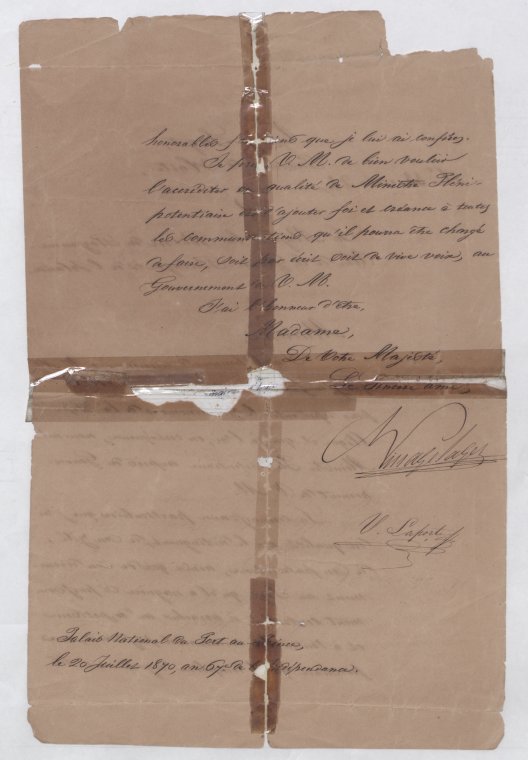 honorables que je lui ai confiées.
Je prie V. M. de bien vouloir
l'accréditer en qualité de Ministre Pléni-
potentiaire et d'ajouter foi et créance à toutes
les communications qu'il pourra être chargé
de faire, soit par écrit soit de vive voix, au
Gouvernement de V. M.
J'ai l'honneur d'être,
Madame,
De Votre Majesté,
Le sincère ami,
Nissage Saget
V. Laporte
Palais National du Port au Prince,
le 20 Juillet 1870, an 67e de l'Indépendance.